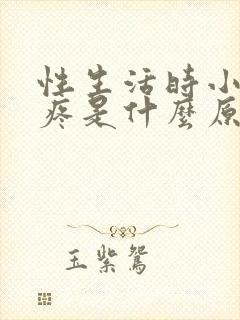 性生活时小
疼是什麼原
玉紫鸳